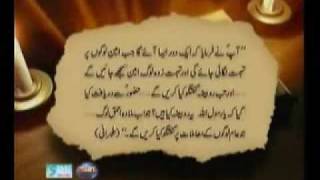 "آپؐ نے فرمایا کہ ایک دور ایسا آئے گا جب امین لوگوں پر
تہمت لگائی جائے گی اور تہمت زدہ لوگ امین سمجھے جائیں گے
اور تب رویبضہ گفتگو کیا کریں گے۔ حضورؐ سے دریافت کیا
گیا کہ یا رسول اللہ یہ رویبضہ کیا ہیں؟ جواب ملا وہ احمق لوگ
جو عام لوگوں کے معاملات پر گفتگو کیا کریں گے۔" (طبرانی)